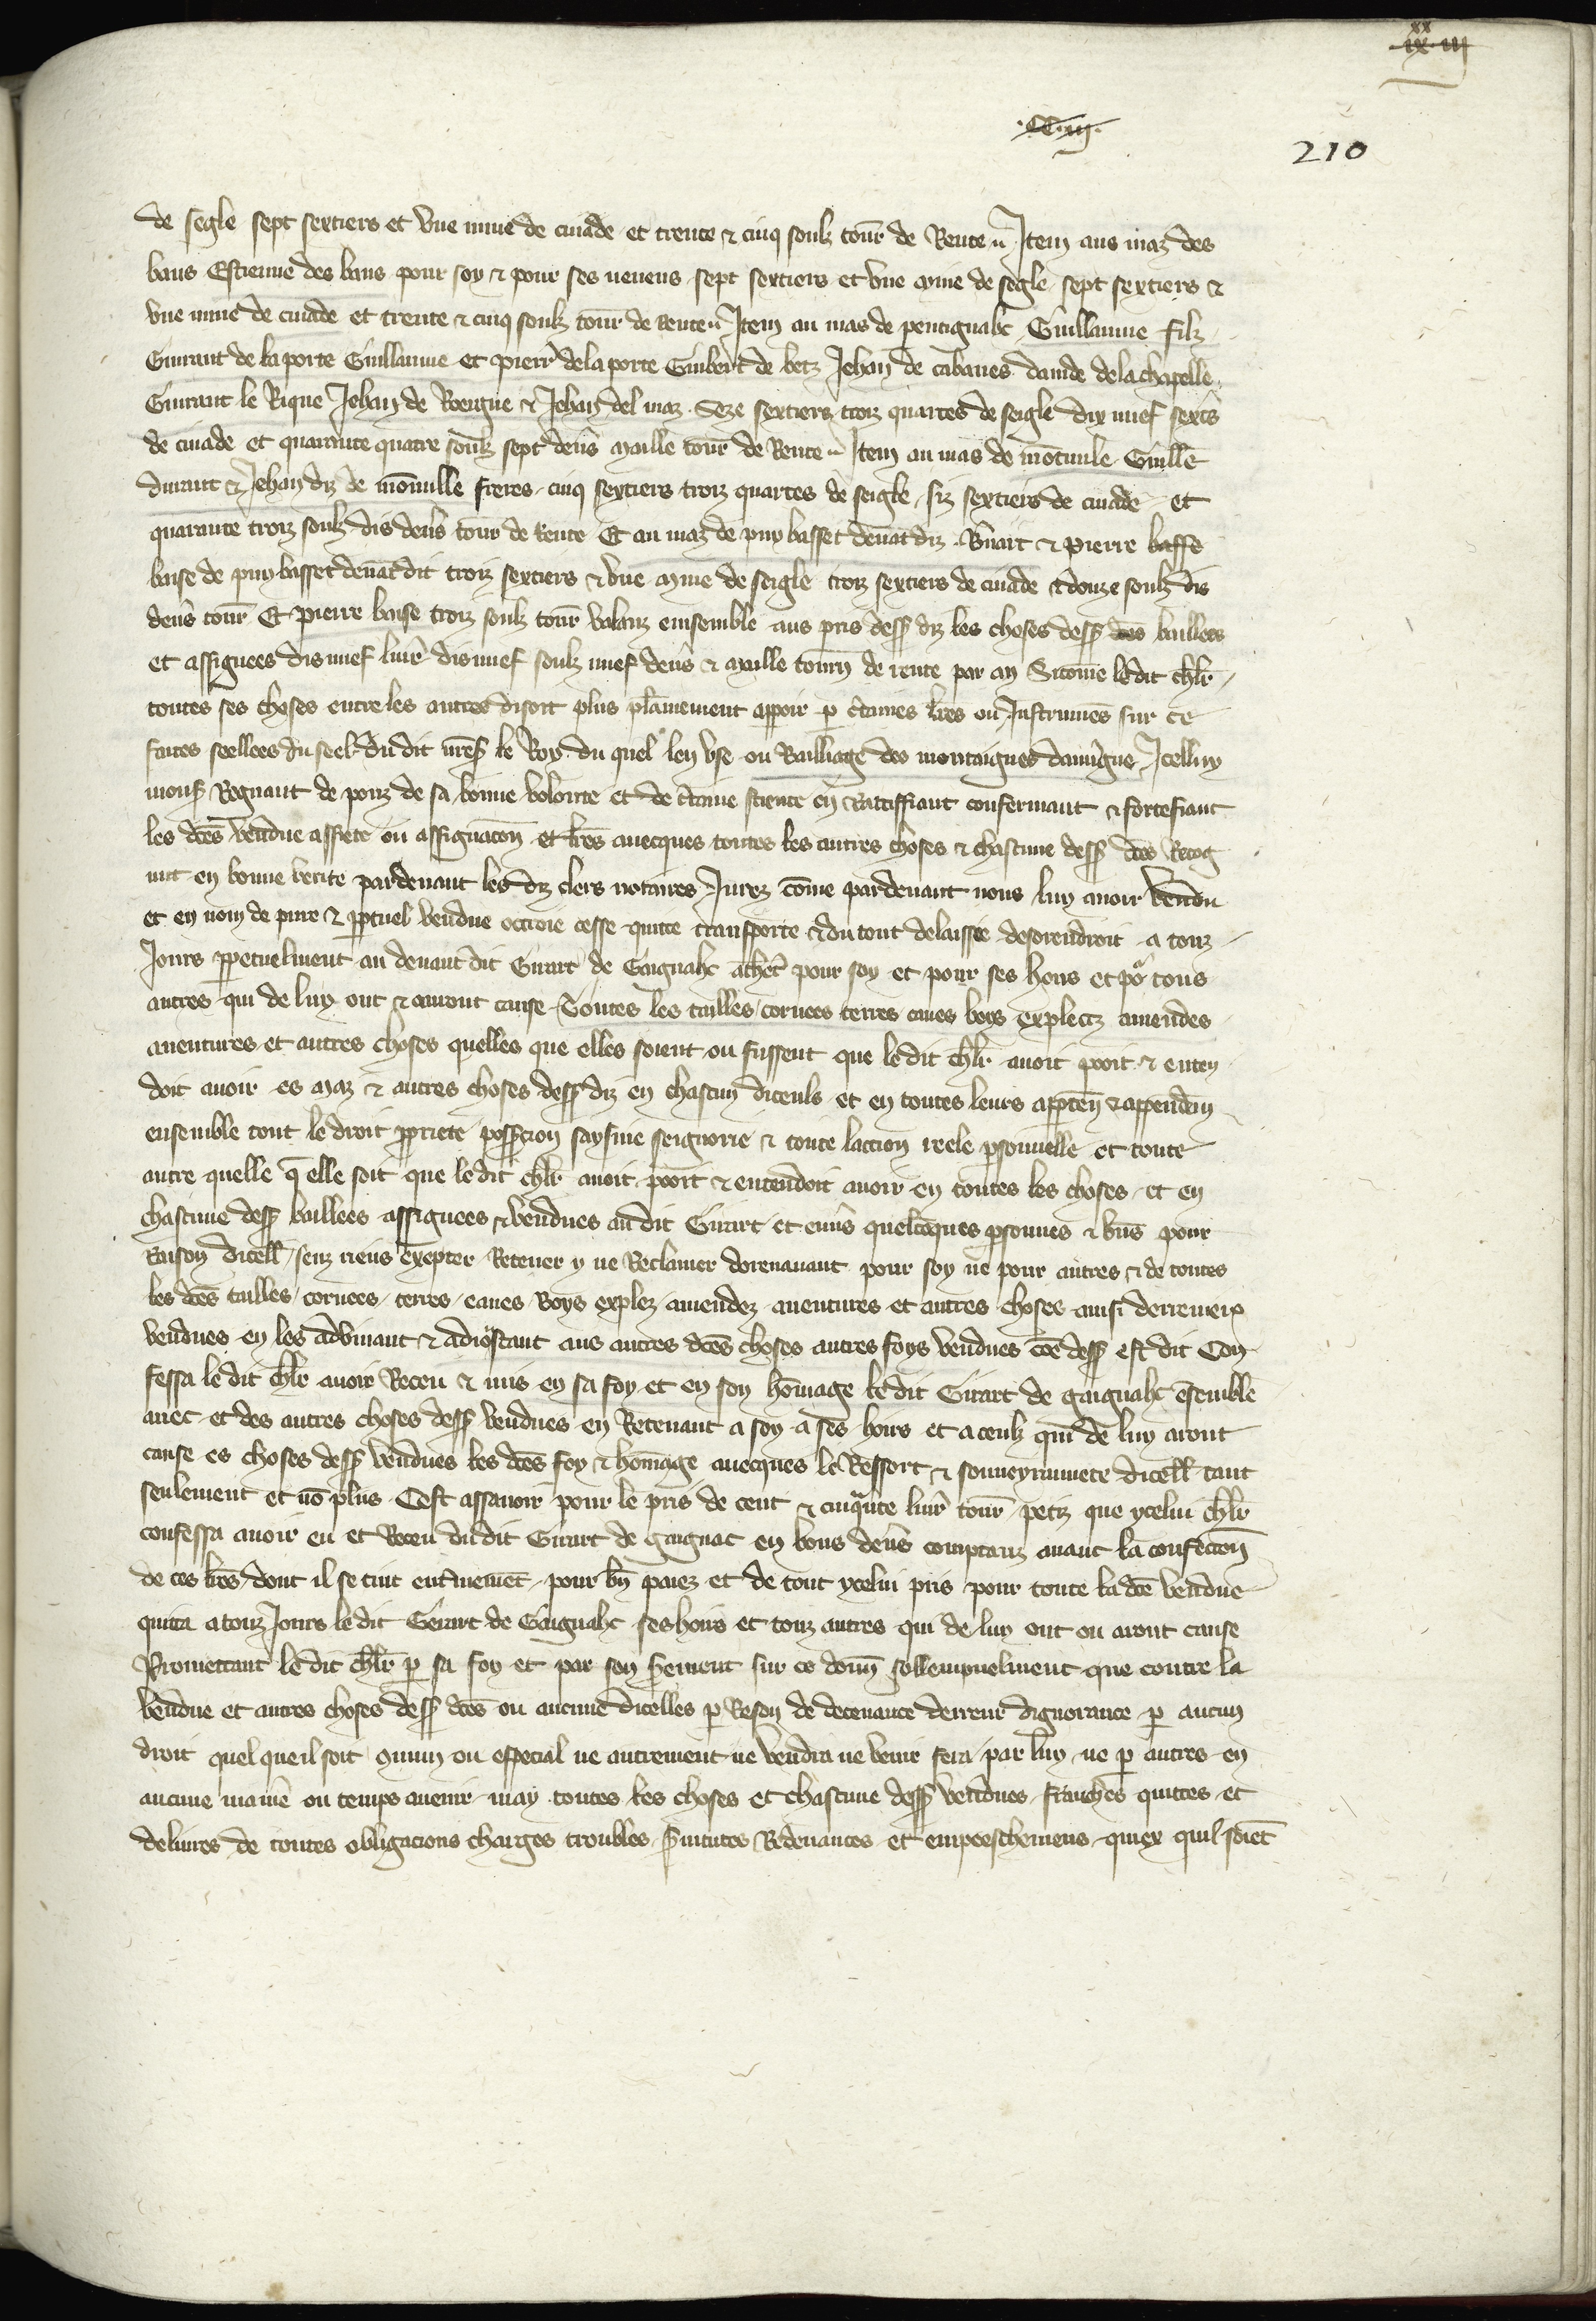 ix xx iii
CC.iii.
210
de segle sept sextiers et vne mine de ciuade et trente & cinq soulz tour̄ de Rente Item aus maz des
baus Estienne des baus pour soy & pour ses neueus sept sextiers et vne mine de segle sept sextiers &
vne mine de ciuade et trente & cinq soulz tour̄ de rente Item au mas de pentignahc Guillaume filz
Guirant de la porte Guillaume et pierr̄ dela porte Guibert de betz Jehan de cabanes dauide dela chapelle
Guirant le Rique Jehan de Roergue & Jehan del maz Seze sextiers troiz quartes de seigle dix nuef sextr̄s
de ciuade et quarante quatre soulz sept denir̄s maille tour̄ de Rente Item au mas de mōtuile Guill̄e
durant & Jehan diz de mōnuille freres cinq sextiers troiz quartes de seigle siz sextiers de ciuade et
quarante troiz soulz dis den̄s tour̄ de Rente Et au maz de puy basset deuāt diz B̄nart & pierre baffe
baise de puy basset deuāt dit troiz sextiers & vne mine de seigle troiz sextiers de ciuade & douze soulz dis
den̄s tour̄ Et pierre baise troiz soulz tour̄ valanz ensemble aus pris dess̄ diz les choses dess̄ dc̄es baillees
et assignees dis nuef liur̄ dis nuef soulz nuef den̄s & maille tourn̄ de rente par an Sicōme ledit chl̄r
toutes ses choses entre les autres disoit plus plāinement apparoir p c̄taines lr̄es ou Instrumēs sur ce
faites seellees du seel du dit nr̄es̄ le Roy du quel len vse ou Bailliage des montaignes dauūgne Icelluy
mons̄ Regnaut de ponz de sa bonne volonte et de c̄taine science en Rattiffiant confermant & fortefiant
les dc̄es vendue assiete ou assignacōn et lr̄es auecques toutes les autres choses & chascune dess̄ dc̄es Recog
nut en bonne verite pardeuant les diz clers notaires Jurez cōme pardeuant nous luy auoir vendu
et en nom de pure & p̄petuel vendue octroie cesse quitte transporte & du tout delaissie desorendroit a touz
Jours p̄petuelment au deuant dit Girart de Gaignahc achet̄ pour soy et pour ses hoirs et po͛ tous
autres qui de luy ont & auront cause Toutes les tailles coruees terres eaues boys explectz amendes
auentures et autres choses quelles que elles soient ou fussent que ledit chl̄r auoit pooit & enten
doit auoir es maz & autres choses dess̄ diz en chascun diceuls et en toutes leurs app̄ten̄ & appenden̄
ensemble tout le droit p̄priete poss̄cion saysine seignorie & toute lacciōn reele p̄sonnelle et toute
autre quelle q̄ elle soit que ledit chl̄r auoit pooit & entendoit auoir en toutes les choses et en
chascune dess̄ baillees assignees & vendues au dit Girart et enuīs quelcōques p̄sonnes & biēs pour
Raison dicell̄ senz riens exepter Retener y ne Reclamer dorenauant pour soy ne pour autres & de toutes
les dc̄es tailles coruees terres eaues Boys explez amendez auentures et autres choses ainsi derrenieir̄
vendues en les advnant & adioustant aus autres dc̄es choses autres foys vendues cōe dess̄ est dit Con
fessa ledit chl̄r auoir Receu & mis en sa foy et en son hōmage ledit Girart de gaignahc ēsemble
auec et des autres choses dess̄ vendues en Retenant a soy a ses hoirs et a ceulz qui de luy aront
cause es choses dess̄ vendues les dc̄es foy & hōmage auecques le Ressort & souueyrainnete dicell̄ tant
seulement et nō plus Cest assauoir pour le pris de cent & cinqūte liur̄ tour̄ petiz que ycelui chl̄r
confessa auoir eu et Receu du dit Girart de gaignac en bons den̄s comptanz auant la confectiōn
de ces lr̄es dont il se tint ent̄inemēt pour bn̄ paiez et de tout ycelui pris pour toute la dc̄e vendue
quitta a touz Jours ledit Girart de Gaignahc ses hoirs et touz autres qui de luy ont ou aront cause
Promettant ledit chl̄r p sa foy et par son s̄ement sur ce donn̄ sollempnelment que contre la
vendue et autres choses dess̄ dc̄es ou aucune dicelles p Reson de deceuance derreur dignorance p aucun
droit quel que il soit ꝯmun ou especial ne autrement ne vendra ne venir fera par luy ne p autres en
aucune maniē ou temps auenir may toutes les choses et chascune dess̄ vendues franches quittes et
deliures de toutes obligacions charges troubles s̄uitutes Redeuances et empeeschemens quiex quil soiēt